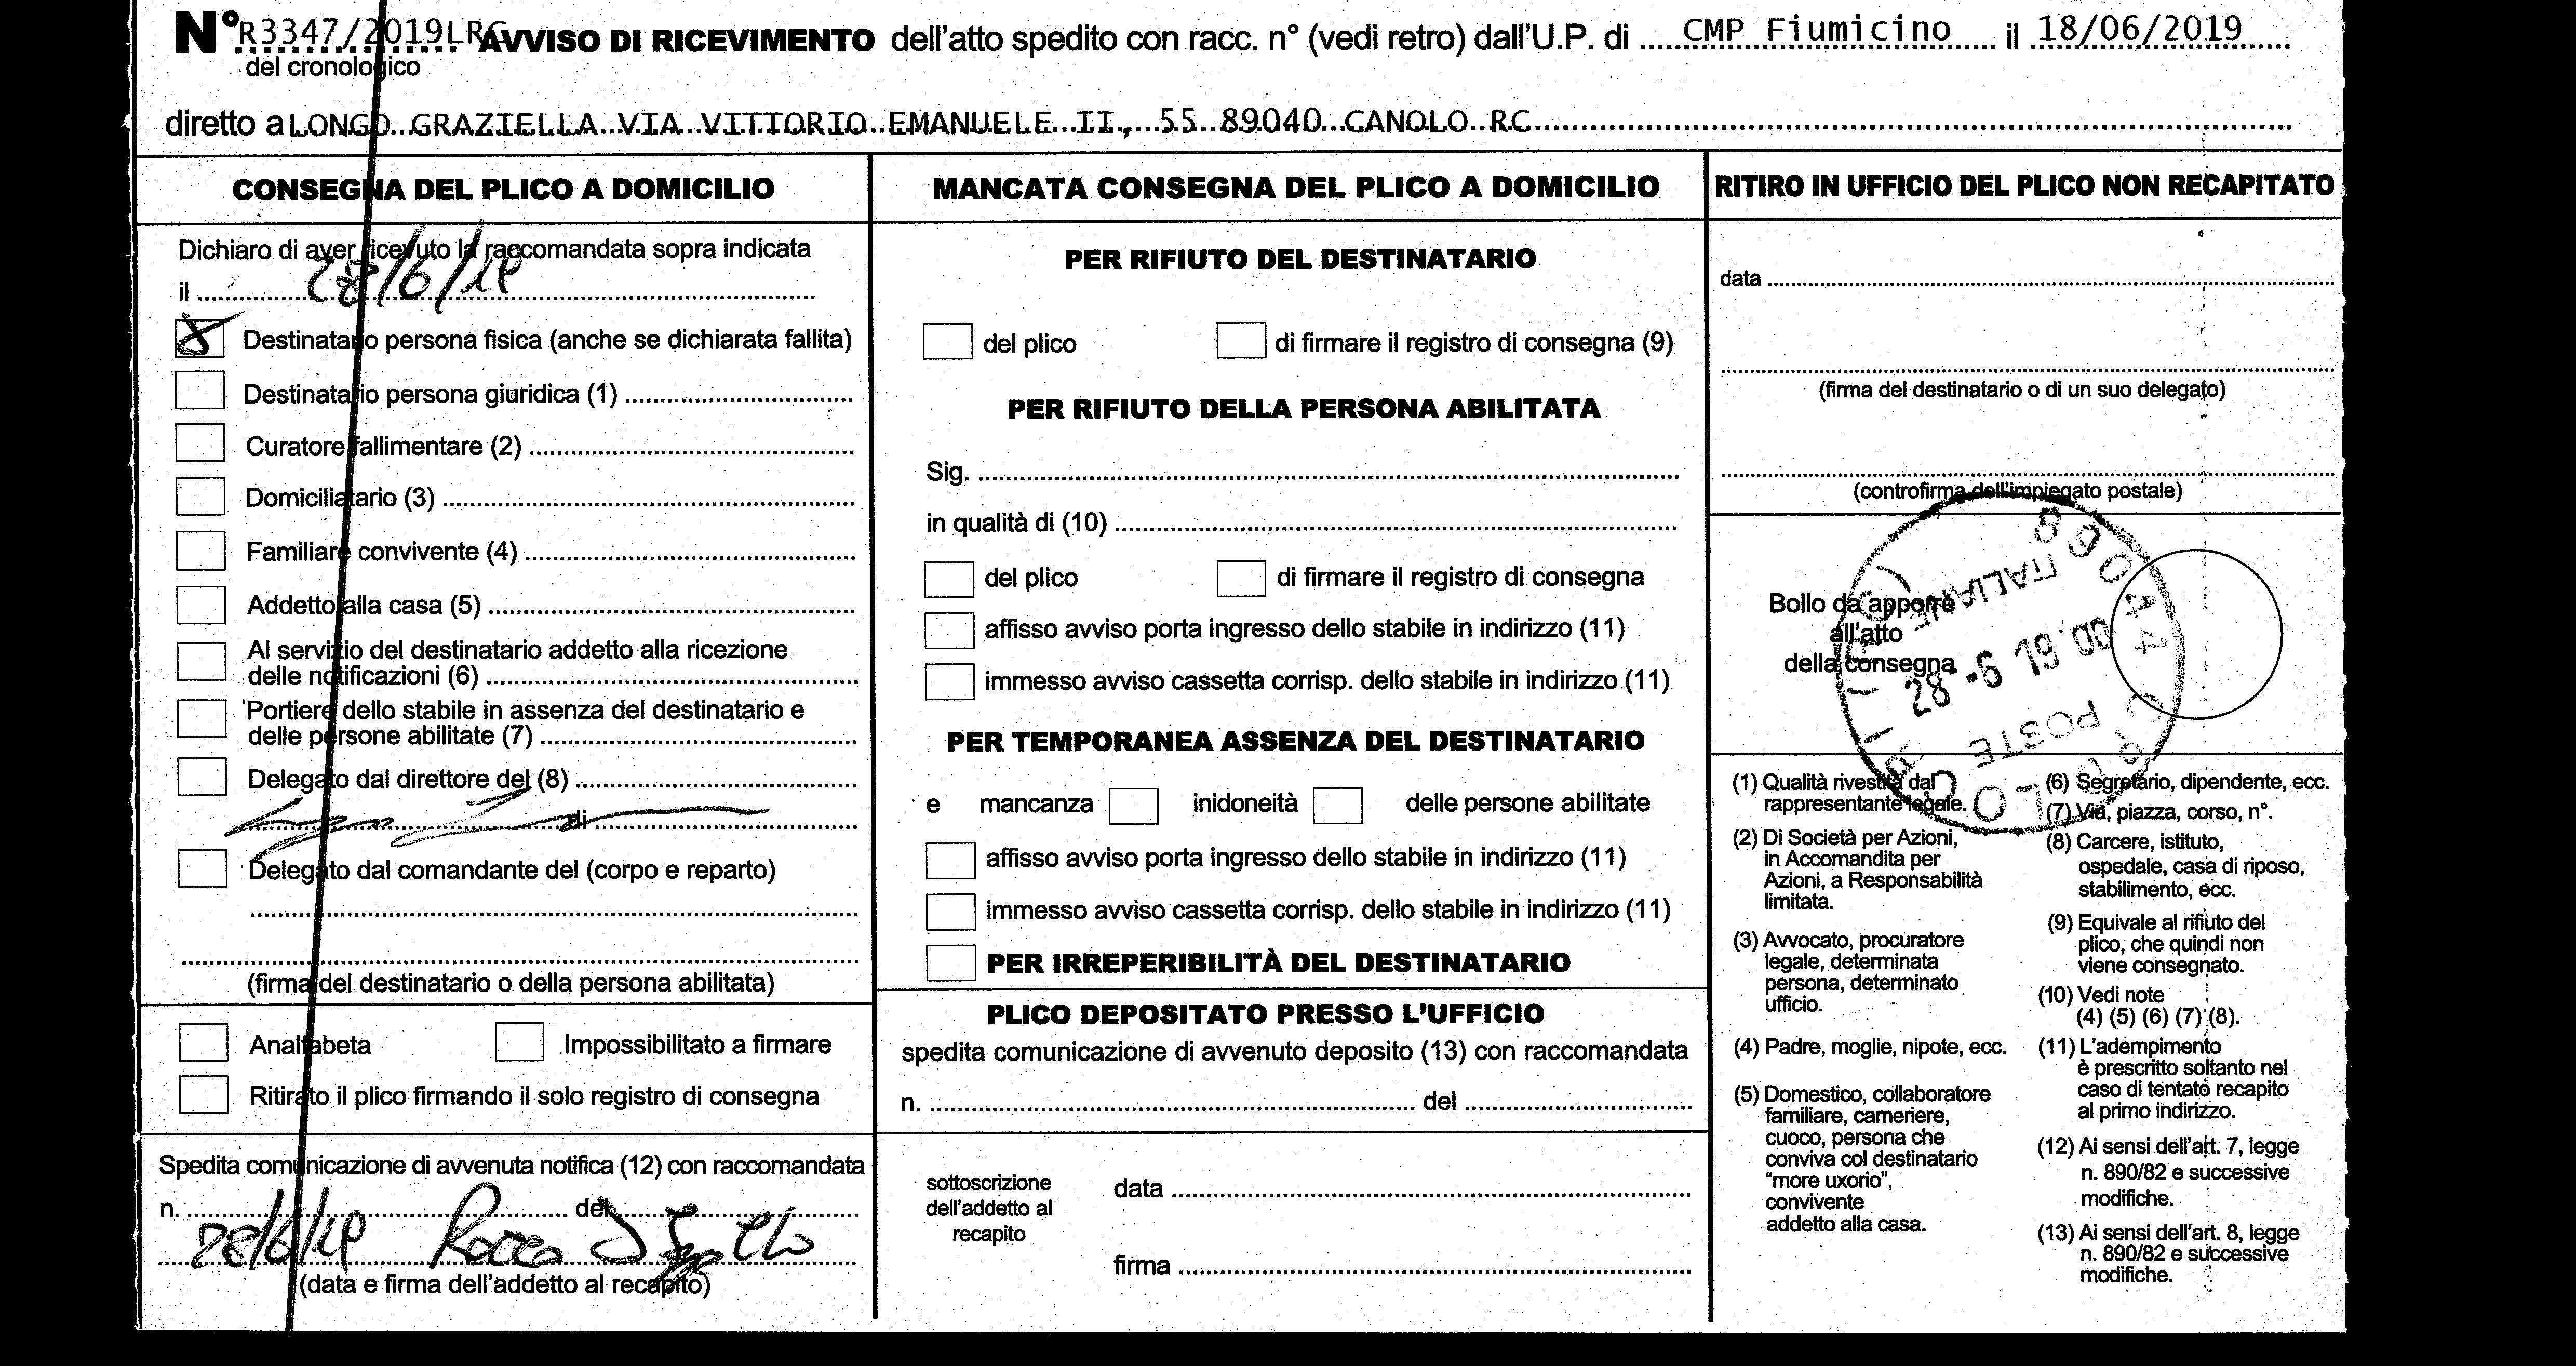 N° R3347/2019LRG AVVISO DI RICEVIMENTO dell'atto spedito con racc. n° (vedi retro) dall'U.P. di CMP Fiumicino il 18/06/2019
del cronologico
diretto a LONGO GRAZIELLA VIA VITTORIO EMANUELE II, 55 89040 CANOLO RC
CONSEGNA DEL PLICO A DOMICILIO
Dichiaro di aver ricevuto la raccomandata sopra indicata
il 28/6/19
Destinatario persona fisica (anche se dichiarata fallita)
Destinatario persona giuridica (1)
Curatore fallimentare (2)
Domiciliatario (3)
Familiare convivente (4)
Addetto alla casa (5)
Al servizio del destinatario addetto alla ricezione
delle notificazioni (6)
Portiere dello stabile in assenza del destinatario e
delle persone abilitate (7)
Delegato dal direttore del (8)
di
Delegato dal comandante del (corpo e reparto)
(firma del destinatario o della persona abilitata)
Analfabeta Impossibilitato a firmare
Ritirato il plico firmando il solo registro di consegna
Spedita comunicazione di avvenuta notifica (12) con raccomandata
n. del
28/6/19 Rocco
(data e firma dell'addetto al recapito)
MANCATA CONSEGNA DEL PLICO A DOMICILIO
PER RIFIUTO DEL DESTINATARIO
del plico di firmare il registro di consegna (9)
PER RIFIUTO DELLA PERSONA ABILITATA
Sig.
in qualità di (10)
del plico di firmare il registro di consegna
affisso avviso porta ingresso dello stabile in indirizzo (11)
immesso avviso cassetta corrisp. dello stabile in indirizzo (11)
PER TEMPORANEA ASSENZA DEL DESTINATARIO
e mancanza inidoneità delle persone abilitate
affisso avviso porta ingresso dello stabile in indirizzo (11)
immesso avviso cassetta corrisp. dello stabile in indirizzo (11)
PER IRREPERIBILITÀ DEL DESTINATARIO
PLICO DEPOSITATO PRESSO L'UFFICIO
spedita comunicazione di avvenuto deposito (13) con raccomandata
n. del
sottoscrizione
dell'addetto al
recapito
data
firma
RITIRO IN UFFICIO DEL PLICO NON RECAPITATO
data
(firma del destinatario o di un suo delegato)
(controfirma dell'impiegato postale)
Bollo da apporre
all'atto
della consegna
POSTE ITALIANE
28 -6 19.00
(1) Qualità rivestita dal
rappresentante legale.
(2) Di Società per Azioni,
in Accomandita per
Azioni, a Responsabilità
limitata.
(3) Avvocato, procuratore
legale, determinata
persona, determinato
ufficio.
(4) Padre, moglie, nipote, ecc.
(5) Domestico, collaboratore
familiare, cameriere,
cuoco, persona che
conviva col destinatario
"more uxorio",
convivente
addetto alla casa.
(6) Segretario, dipendente, ecc.
(7) Via, piazza, corso, n°.
(8) Carcere, istituto,
ospedale, casa di riposo,
stabilimento, ecc.
(9) Equivale al rifiuto del
plico, che quindi non
viene consegnato.
(10) Vedi note
(4) (5) (6) (7) (8).
(11) L'adempimento
è prescritto soltanto nel
caso di tentato recapito
al primo indirizzo.
(12) Ai sensi dell'art. 7, legge
n. 890/82 e successive
modifiche.
(13) Ai sensi dell'art. 8, legge
n. 890/82 e successive
modifiche.